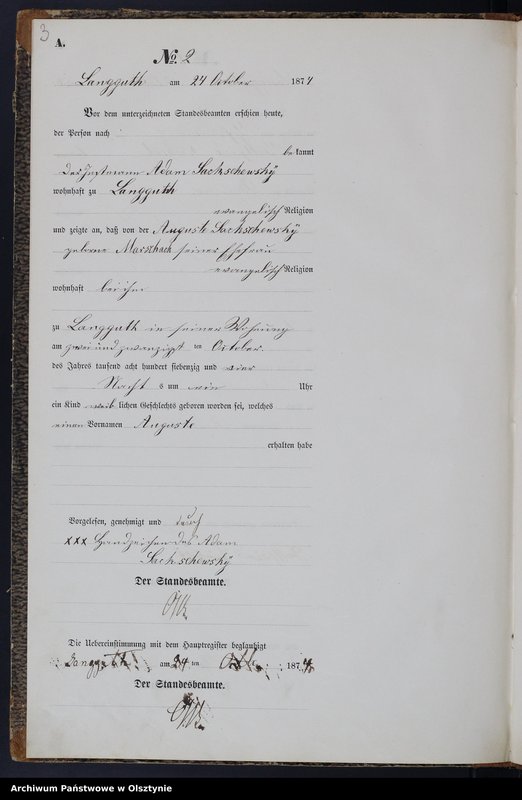 3
A.
No. 2
Langguth am 24 October 1874
Vor dem unterzeichneten Standesbeamten erschien heute,
der Person nach
be kannt
der Instmann Adam Sachschewsky
wohnhaft zu Langguth
evangelisch Religion
und zeigte an, daß von der Auguste Sachschewsky
geborne Marzbach seiner Ehefrau
evangelisch Religion
wohnhaft bei ihm
zu Langguth in seiner Wohnung
am zwei und zwanzigst ten October
des Jahres tausend acht hundert siebenzig und vier
Nacht s um Uhr
ein Kind weib lichen Geschlechts geboren worden sei, welches
einen Vornamen Auguste
erhalten habe
Vorgelesen, genehmigt und durch
xxx Handzeichen des Adam
Sachschewsky
Der Standesbeamte.
Die Uebereinstimmung mit dem Hauptregister beglaubigt
Langguth am 24 ten 1874
Der Standesbeamte.
Archiwum Państwowe w Olsztynie